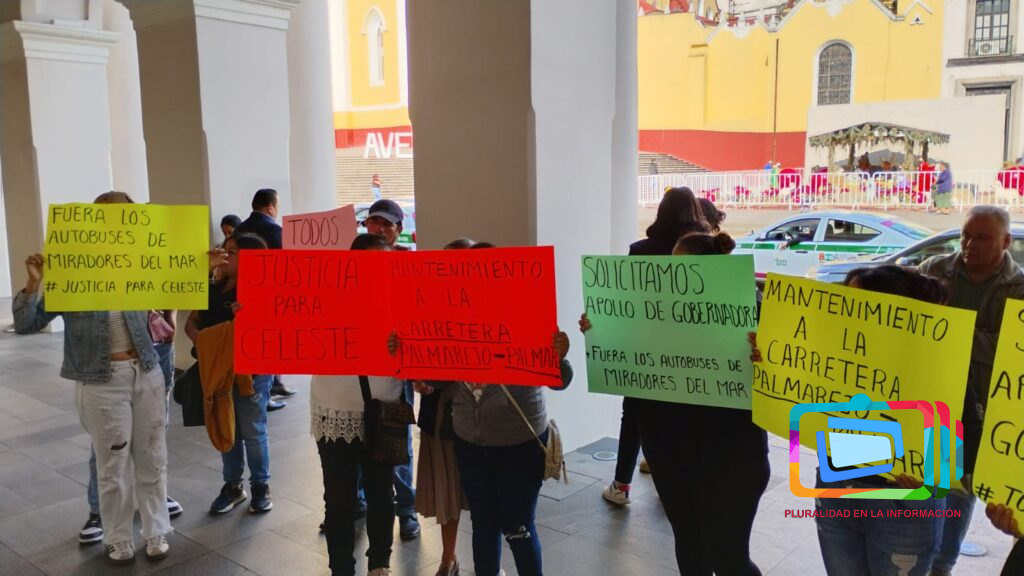 AVE
FUERA LOS
AUTOBUSES DE
MIRADORES DEL MAR
# JUSTICIA PARA CELESTE
TODOS
JUSTICIA
PARA
CELESTE
MANTENIMIENTO
A LA
CARRETERA
PALMAREJO-PALMAR
SOLICITAMOS
APOLLO DE GOBERNADORA
FUERA LOS AUTOBUSES DE
MIRADORES DEL MAR
MANTENIMIENTO
A LA
CARRETERA
PALMAREJO-
PLURALIDAD EN LA INFORMACIÓN